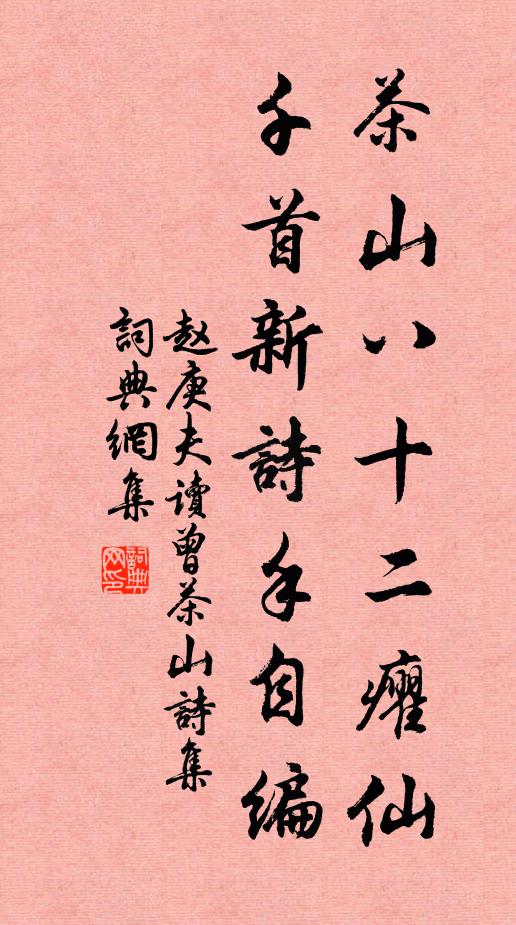 茶山八十二癯仙
千首新詩手自編
赵庚夫读曾茶山詩集
詞典網集
詞典網印